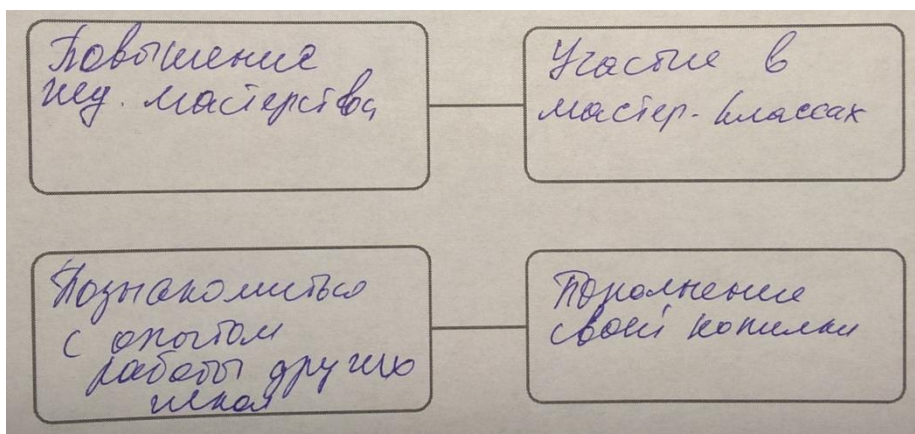 Повышение
пед. мастерства
Участие в
мастер-классах
Познакомиться
с опытом
работы других
школ
Пополнение
своей копилки